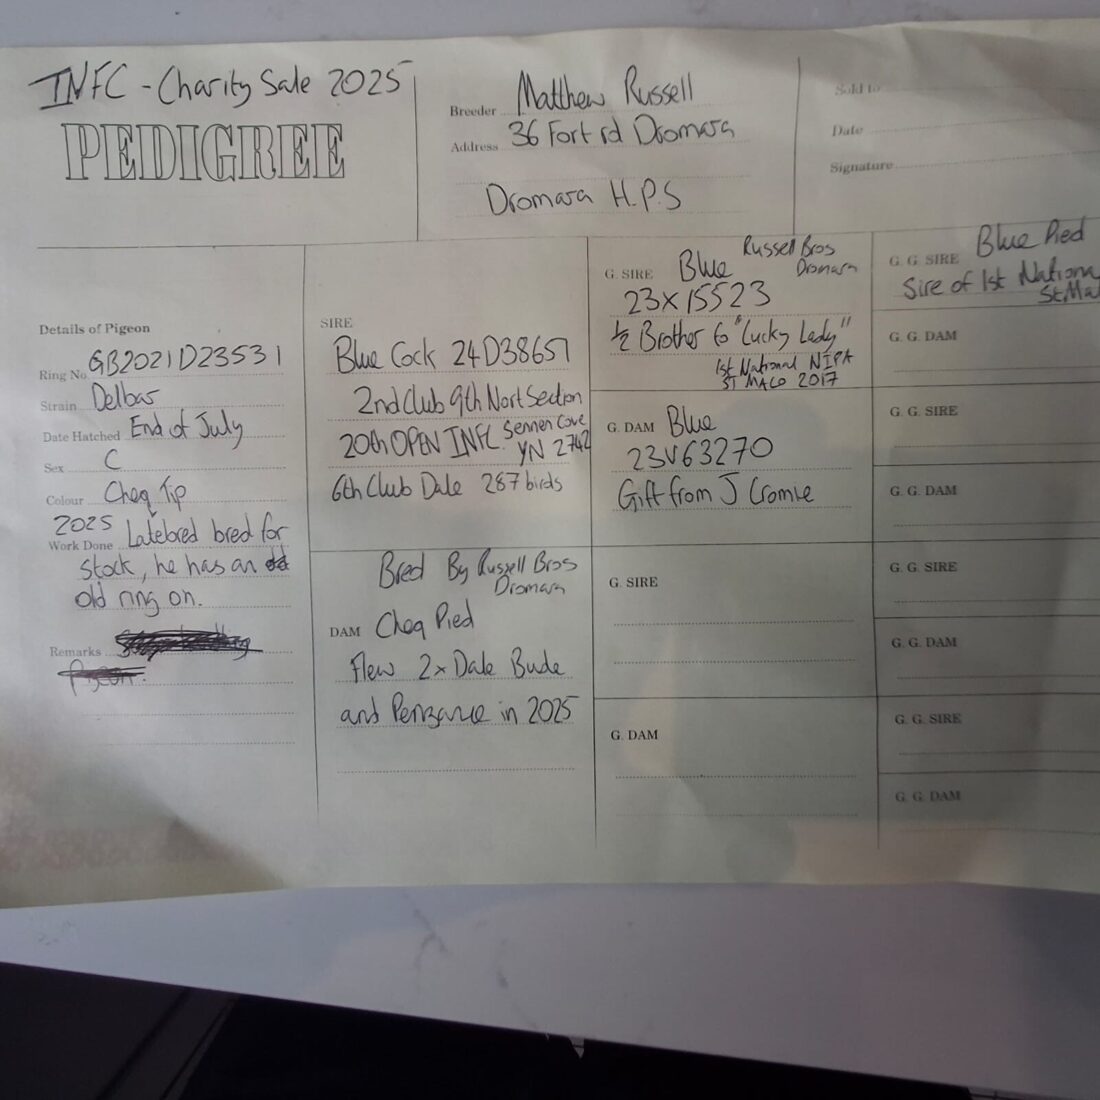 INFC - Charity Sale 2025
PEDIGREE
Breeder Matthew Russell
Address 36 Fort rd Dromara
Dromara H.P.S
Sold to
Date
Signature
Details of Pigeon
Ring No. GB2021D23531
Strain Delbar
Date Hatched End of July
Sex C
Colour Cheq Tip
2025
Work Done Latebred bred for
stock, he has an
old ring on.
Remarks
SIRE
Blue Cock 24D38651
2nd Club 9th Nort Section
20th OPEN INFC Sennen Cove
YN 2742
6th Club Dale 287 birds
Bred By Russell Bros
Dromara
DAM Cheq Pied
Flew 2x Dale Bude
and Penzance in 2025
G. SIRE Blue Russell Bros
Dromara
23X15523
½ Brother to "Lucky Lady"
1st National NIPA
ST MALO 2017
G. DAM Blue
23V63270
Gift from J Cromie
G. SIRE
G. DAM
G. G. SIRE Blue Pied
Sire of 1st Nationa
St.Ma
G. G. DAM
G. G. SIRE
G. G. DAM
G. G. SIRE
G. G. DAM
G. G. SIRE
G. G. DAM